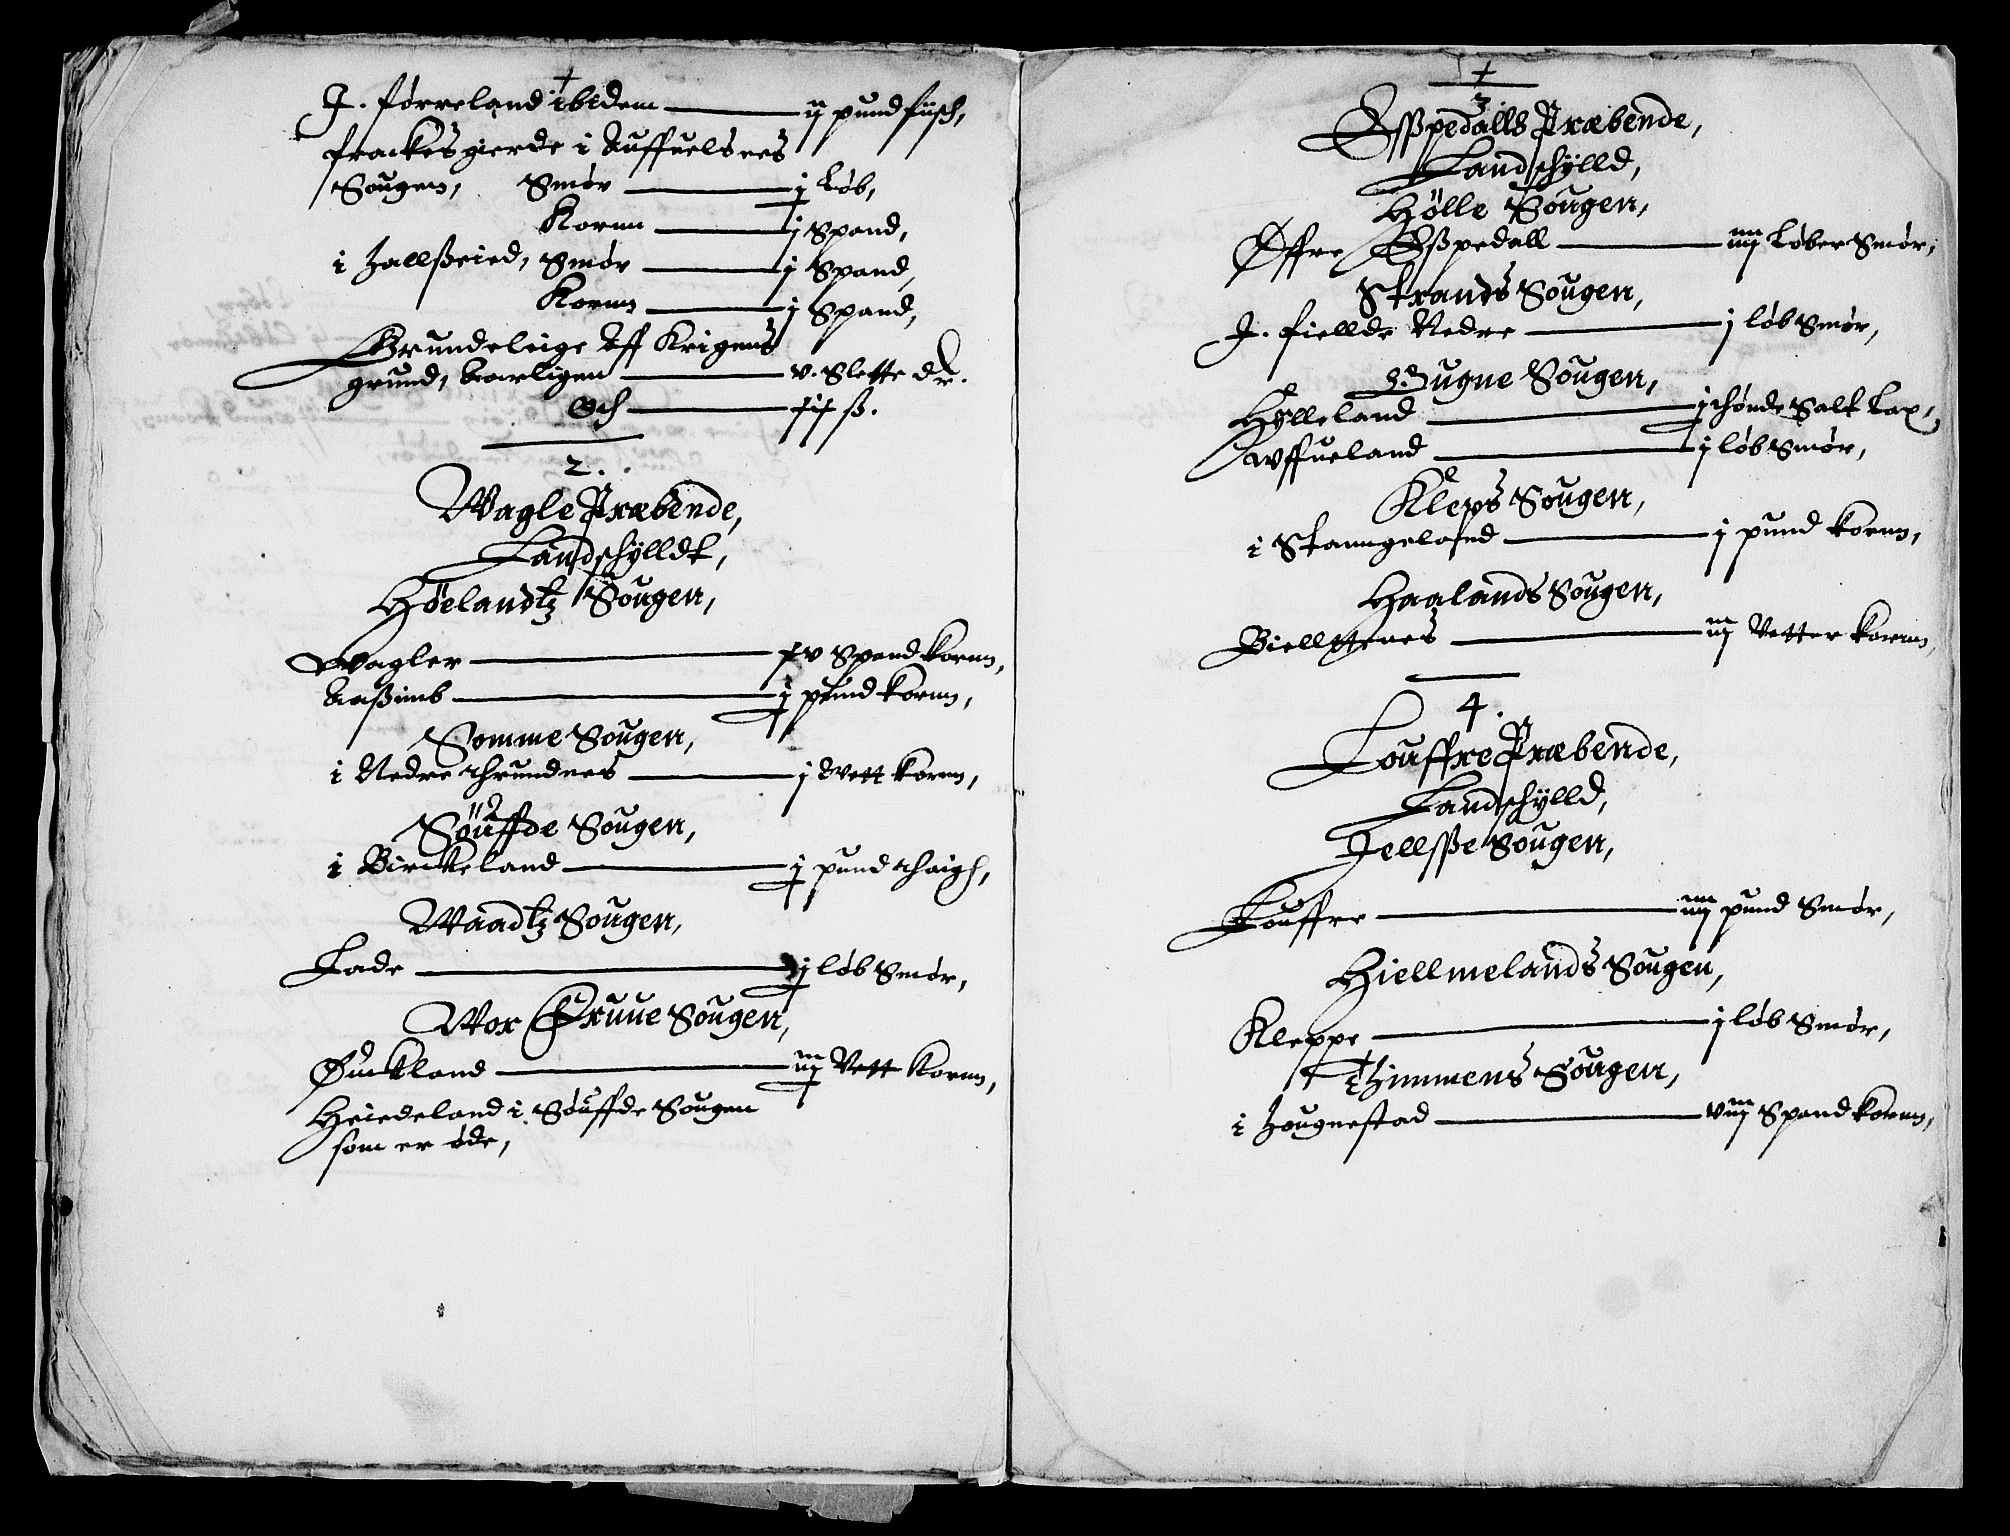 J. Førreland ibidem — ij pund fiisk,
frackes gierde i Auffuelsnes
Sougen, Smør — j Løb,
Kornn — j Spand,
i Jallsseied, Smør — j Spand,
Kornn — j Spand,
Grundeleige Aff Krigens
grund, baarligen — v. Slette dr.
Och — ß.
2.
Wagle Præbende,
Landschylldt,
Höelandtz Sougen,
Wagler — xv Spand kornn,
Aaßimb — j pund kornn,
Somme Sougen,
i Nedre Thrundnes — j Vett kornn,
Söuffde Sougen,
i Birckeland — j pund Thaigh,
Waadtz Sougen,
Lade — j løb Smør,
Wor Fruue Sougen,
Øuckland — iij Vett Kornn,
Heiedeland i Søuffde Sougen
som er øde,
3.
Esspedalls Præbende,
Landschylld,
Hölle Sougen,
Øffre Esspedall — iiij Løber Smør,
Strands Sougen,
J. Fiellde Nedre — j løb Smør,
Gugne Sougen,
Hylleland — j thønde Salt Lax,
Awffueland — j løb Smør,
Kleps Sougen,
i Stanngeland — j pund kornn,
Haalands Sougen,
Biellttenes — iij Vetter kornn,
4.
Louffre Præbende,
Landschylld,
Jellsße Sougen,
Louffre — iiij pund Smør,
Hiellmelands Sougen,
Kleppe — j løb Smør,
Thimmens Sougen,
i Hougnestad — viij Spand kornn,